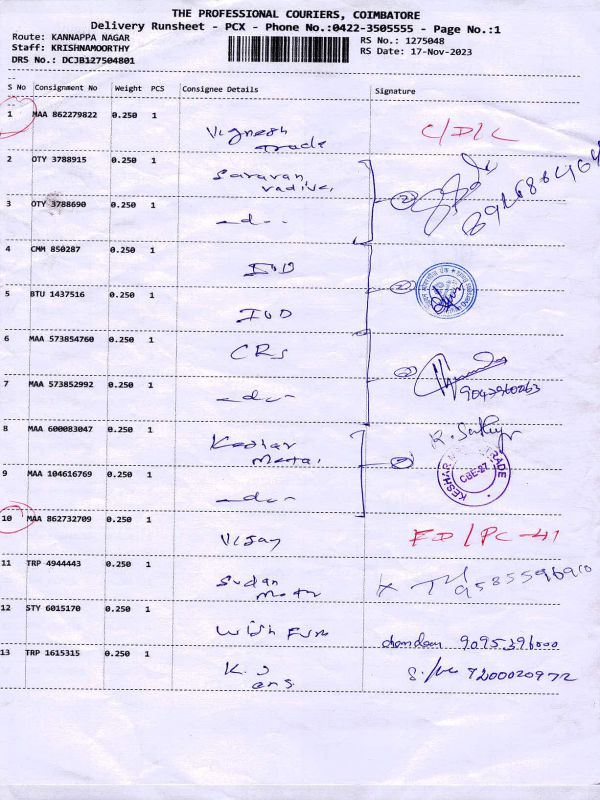 THE PROFESSIONAL COURIERS, COIMBATORE
Delivery Runsheet - PCX - Phone No.:0422-3505555 - Page No.:1
Route: KANNAPPA NAGAR
Staff: KRISHNAMOORTHY
DRS No.: DCJB127504801
RS No.: 1275048
RS Date: 17-Nov-2023
S No Consignment No Weight PCS Consignee Details Signature
1 MAA 862279822 0.250 1 Vignesh Trade C/D/L
2 OTY 3788915 0.250 1 Saravan
3 OTY 3788690 0.250 1 -do-
4 CMM 850287 0.250 1 IOD
5 BTU 1437516 0.250 1 IOD
6 MAA 573854760 0.250 1 CRS
7 MAA 573852992 0.250 1 -do- 9047960263
8 MAA 600083047 0.250 1 Keshar Metal
9 MAA 104616769 0.250 1 -do- KESHAR TRADE CBE-27
10 MAA 862732709 0.250 1 Vijay ED/PC-41
11 TRP 4944443 0.250 1 9585596910
12 STY 6015170 0.250 1 Wish Furn 9095396000
13 TRP 1615315 0.250 1 K. J 9200020972